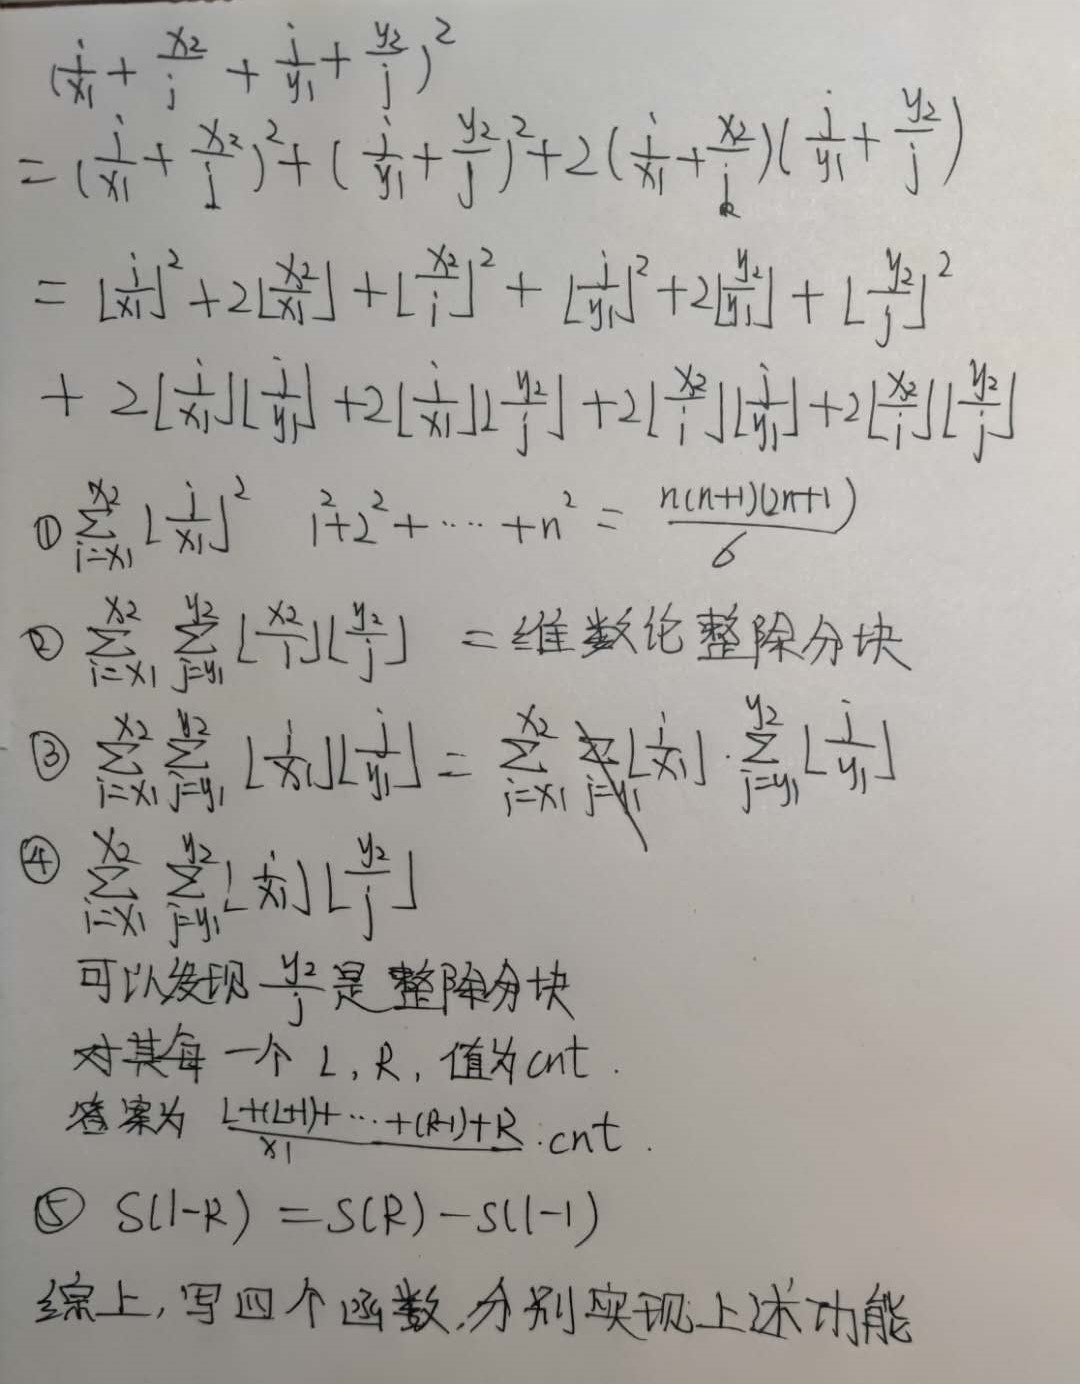 (i/x1 + x2/i + j/y1 + y2/j)²
= (i/x1 + x2/i)² + (j/y1 + y2/j)² + 2(i/x1 + x2/i)(j/y1 + y2/j)
= ⌊i/x1⌋² + 2⌊x2/x1⌋ + ⌊x2/i⌋² + ⌊j/y1⌋² + 2⌊y2/y1⌋ + ⌊y2/j⌋²
+ 2⌊i/x1⌋⌊j/y1⌋ + 2⌊i/x1⌋⌊y2/j⌋ + 2⌊x2/i⌋⌊j/y1⌋ + 2⌊x2/i⌋⌊y2/j⌋
① ∑_{i=x1}^{x2} ⌊i/x1⌋² 1²+2²+⋯+n² = n(n+1)(2n+1)/6
② ∑_{i=x1}^{x2} ∑_{j=y1}^{y2} ⌊x2/i⌋⌊y2/j⌋ 二维数论整除分块
③ ∑_{i=x1}^{x2} ∑_{j=y1}^{y2} ⌊i/x1⌋⌊j/y1⌋ = ∑_{i=x1}^{x2} ⌊i/x1⌋ · ∑_{j=y1}^{y2} ⌊j/y1⌋
④ ∑_{i=x1}^{x2} ∑_{j=y1}^{y2} ⌊i/x1⌋⌊y2/j⌋
可以发现 y2/j 是整除分块
对其每一个 L, R, 值为cnt.
答案为 (L+(L+1)+⋯+(R-1)+R)/x1 · cnt.
⑤ S(l-R) = S(R) - S(l-1)
综上, 写四个函数, 分别实现上述功能